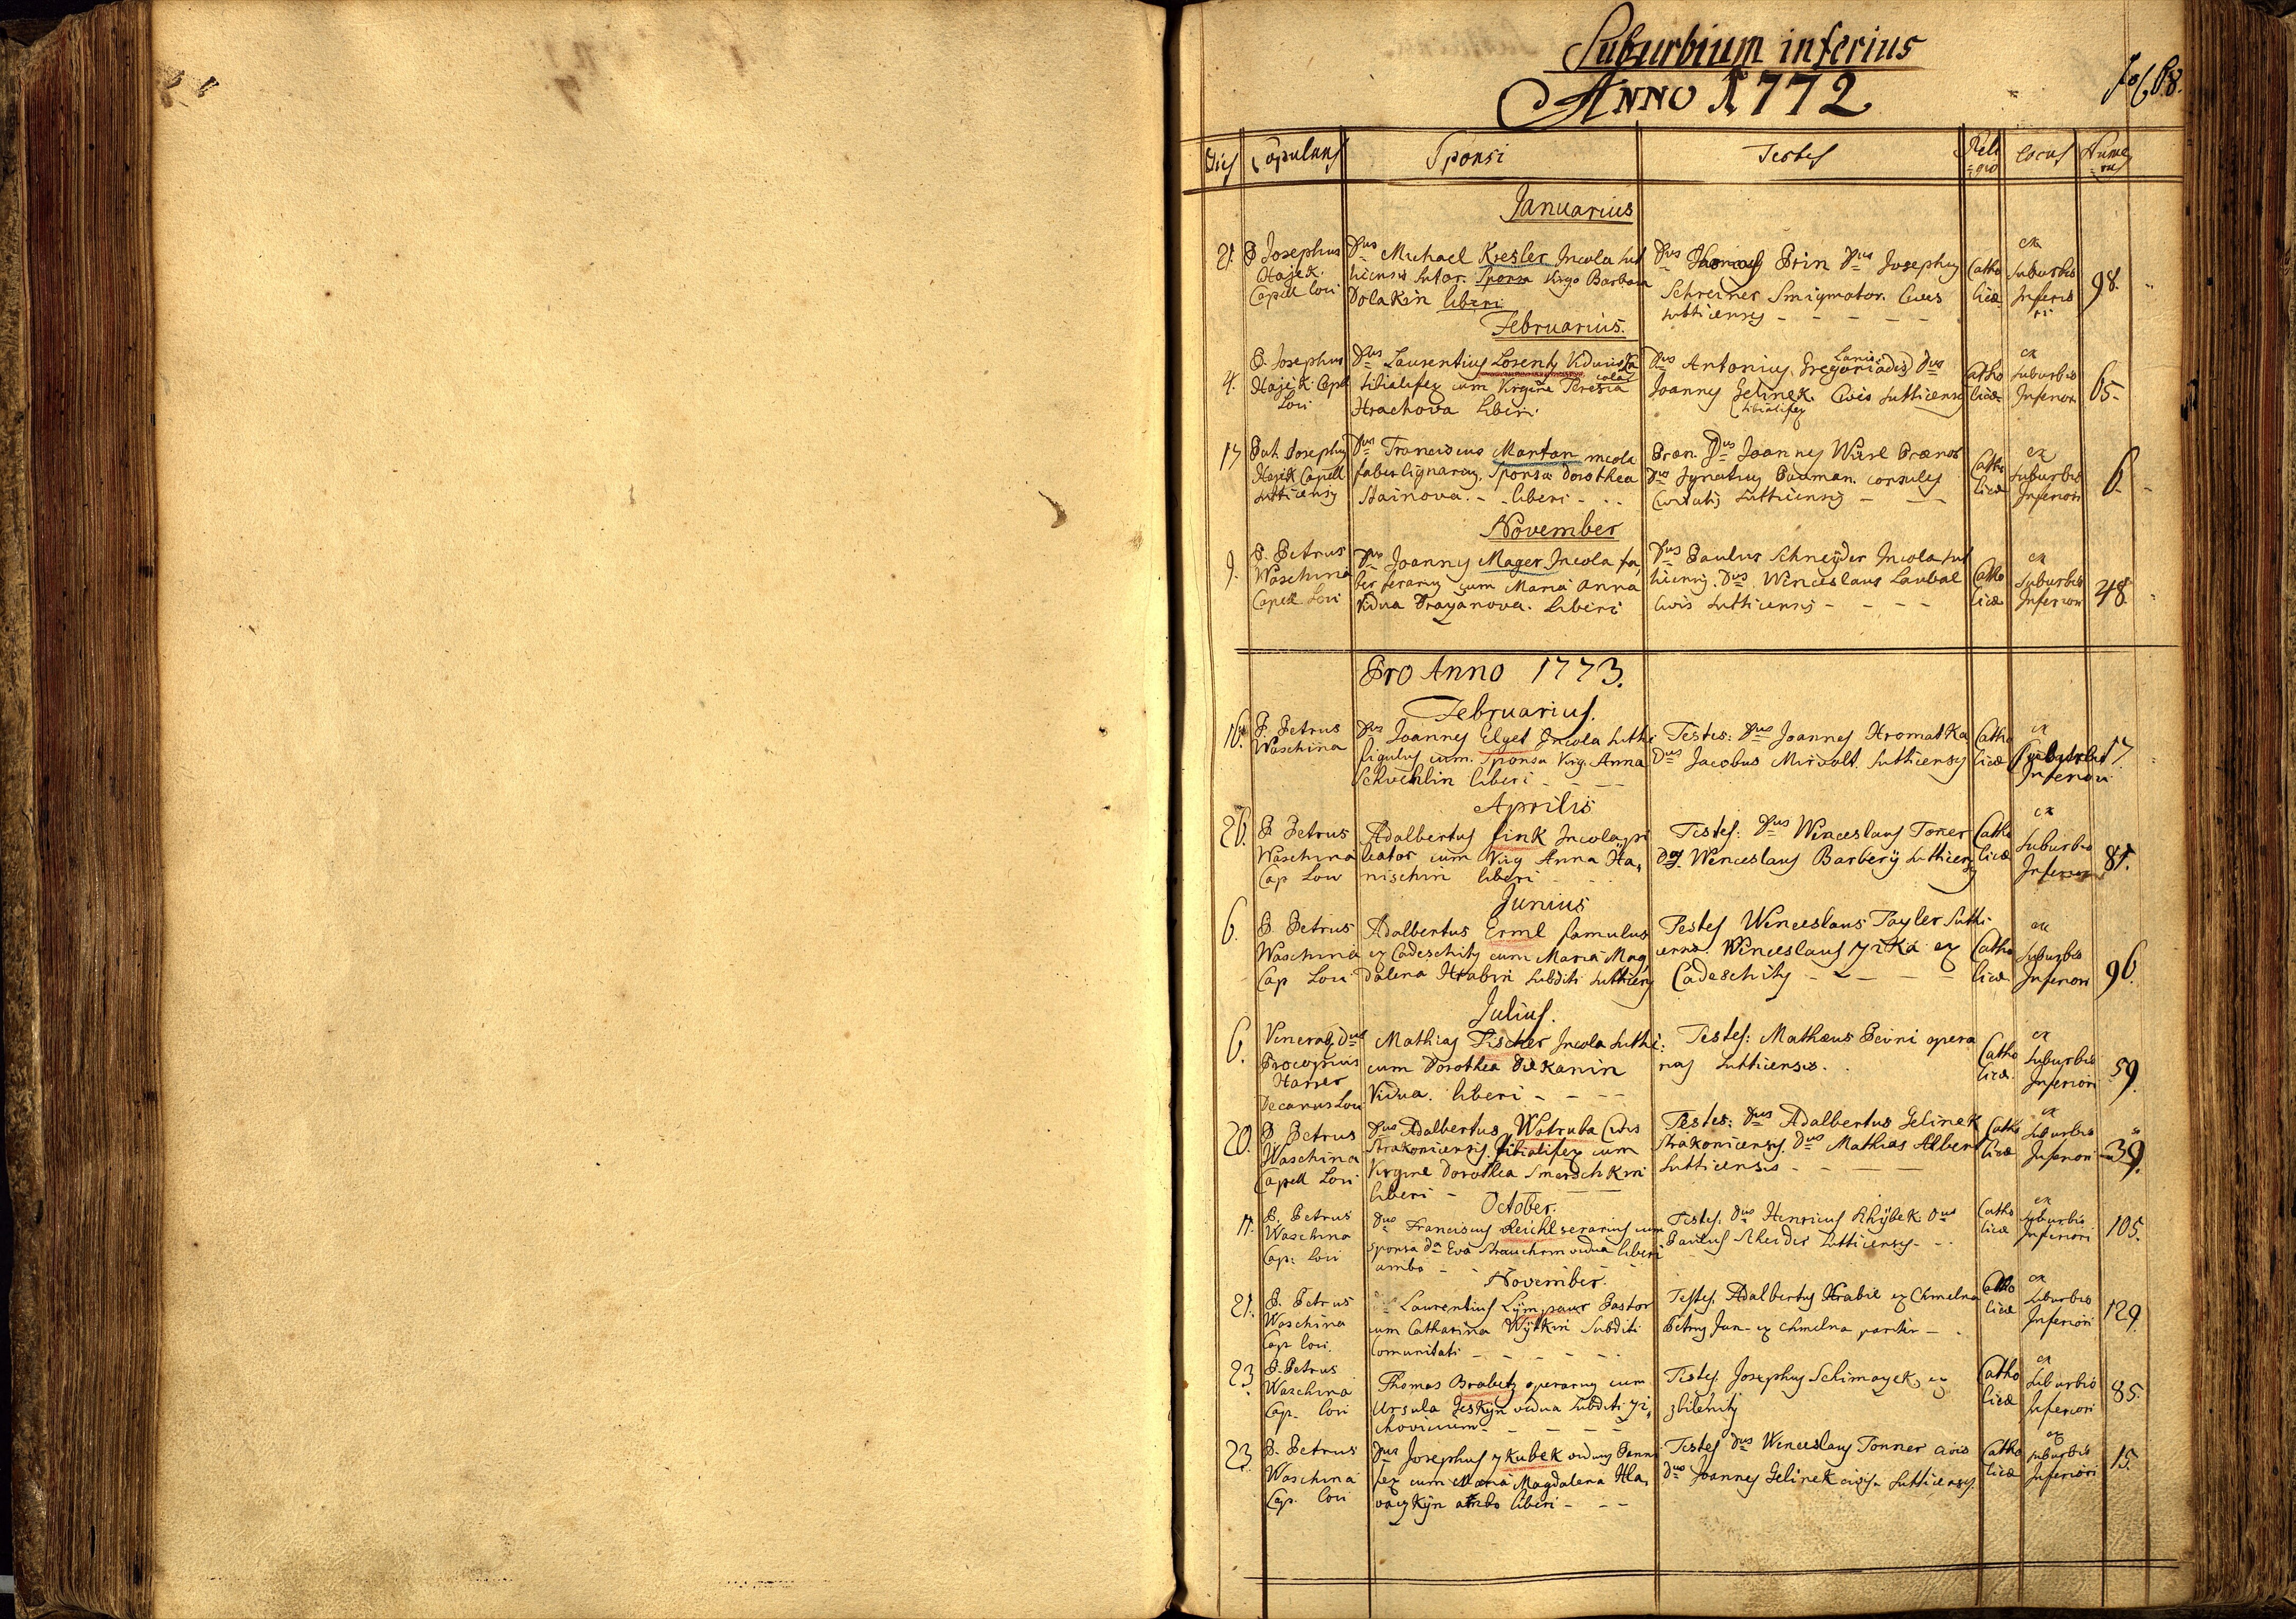 Suburbium inferius
Anno 1772
fol 68.
Dies Copulans Sponsi Testes Reli=gio Locus Nume=rus
Januarius
21. P Josephus Hajek. Capell loci
Dus Michael Kresler Incola Sut
ticensis Sutor. Sponsa Virgo Barbara
Dolakin liberi
Dus Prin Dus Josephus
Schreiner Smigmator. Cives
Sutticenses
Catholicæ
ex Suburbio Inferiori
98.
Februarius.
4. P. Josephus Hajek Capll Loci
Dus Laurentius Losenty Viduus Incola
tibialifex cum Virgine Teresia
Hrachova liberi.
Dus Antonius Gregoriades Lanio Dus
Joannes Gelinek Civis Sutticenses
tibialifex
Catholicæ
ex Suburbio Inferiori
65.
17 Pat Josephus Hajek Capell Sutticensis
Dus Franciscus Manton incola
faber lignarius. Sponsa Dorothea
Stainova. liberi
Præn Dus Joannes Würl Prænob
Dus Ignatius Pauman. consules
Civitatis Sutticensis
Catholicæ
ex Suburbio Inferiori
6.
November
9. P. Petrus Waschina Capell. Loci
Dus Joannes Mager Incola fa
ber ferarius cum Maria Anna
Vidua Drayanova. liberi
Dus Paulus Schneÿder Incola Sut
ticensis. Dus Wenceslaus Laubal
Civis Sutticensis
Catholicæ
ex Suburbio Inferiori
48.
Pro Anno 1773.
Februarius.
16. P. Petrus Waschina
Dus Joannes Elget Incola Sutti
figulus cum Sponsa Virg. Anna
Schwehlin liberi
Testes: Dus Joannes Hromatka
Dus Jacobus Mirwalt. Sutticenses
Catholicæ
ex Suburbio Inferiori
17.
Aprilis
26. P Petrus Waschina Cap Loci
Adalbertus fink Incola pi
scator cum Virg Anna Ha,
nischin liberi
Testes: Dus Wenceslaus Toner
Dus Wenceslaus Barberÿ Sutticenses
Catholicæ
ex Suburbio Inferiori
81.
Junius
6. P. Petrus Waschina Cap Loci
Adalbertus Erml famulus
ex Cadeschitz cum Maria Mag,
dalena Hrabin Subditi Sutticens
Testes Wenceslaus Tayler Sutti
cens. Wenceslaus Jirka ex
Cadeschitz
Catholicæ
ex Suburbio Inferiori
96.
Julius.
6. Venerab. Dus Procopius Harrer Decanus Loci
Mathias Fischer Incola Sutti:
cum Dorothea Dekanin
Vidua. liberi
Testes: Mathæus Peirni opera
rius Sutticensis.
Catholicæ
ex Suburbio Inferiori
59.
20. P Petrus Waschina Capell Loci
Dus Adalbertus Wotruba Civis
Strakonicensis tibialifex cum
Virgine Dorothea Smerdschkin
liberi
Testes: Dus Adalbertus Gelinek
Strakonicensis. Dus Mathias Alber
Sutticensis
Catholicæ
ex Suburbio Inferiori
39.
October.
17. P. Petrus Waschina Cap. Loci
Dus Franciscus Reichl serarius cum
sponsa Da Eva Strauchin vidua liberi
ambo
Testes: Dus Henricus Rhÿbek Dus
Paulus Schnider Sutticenses
Catholicæ
ex Suburbio Inferiori
105.
November.
21. P. Petrus Waschina Cap loci.
Laurentius Lÿmpaur Pastor
cum Catharina Wÿtkin Subditi
Comunitati
Testes. Adalbertus Hrabie ex Chmelna
Petrus Jun ex Chmelna pariter
Catholicæ
ex Suburbio Inferiori
129.
23. P. Petrus Waschina Cap. loci
Thomas Brabetz operarius cum
Ursula Geskÿn vidua Subditi Ji,
chovicium
Testes. Josephus Schimayek, ex
zbilenitz
Catholicæ
ex Suburbio Inferiori
85.
23. P. Petrus Waschina Cap. loci
Dus Josephus Jkubek viduus Panni
fex cum Maria Magdalena Hla,
vaczkÿn ambo liberi
Testes Dus Wenceslaus Tonner civis
Dus Joannes Gelinek civis Sutticensis
Catholicæ
ex Suburbio Inferiori
15.